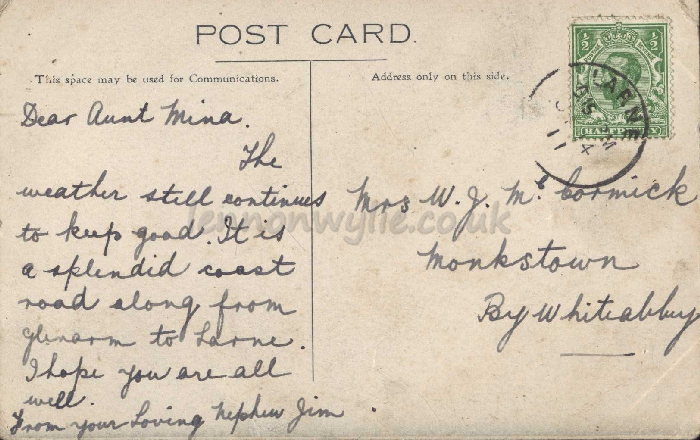 POST CARD.
This space may be used for Communications.
Address only on this side.
½ ½
HALFPENNY
LARNE
Dear Aunt Mina.
The
weather still continues
to keep good. It is
a splendid coast
road along from
Glenarm to Larne.
I hope you are all
well.
From your Loving Nephew Jim
Mrs W. J. McCormick
Monkstown
By Whiteabbey
lennonwylie.co.uk